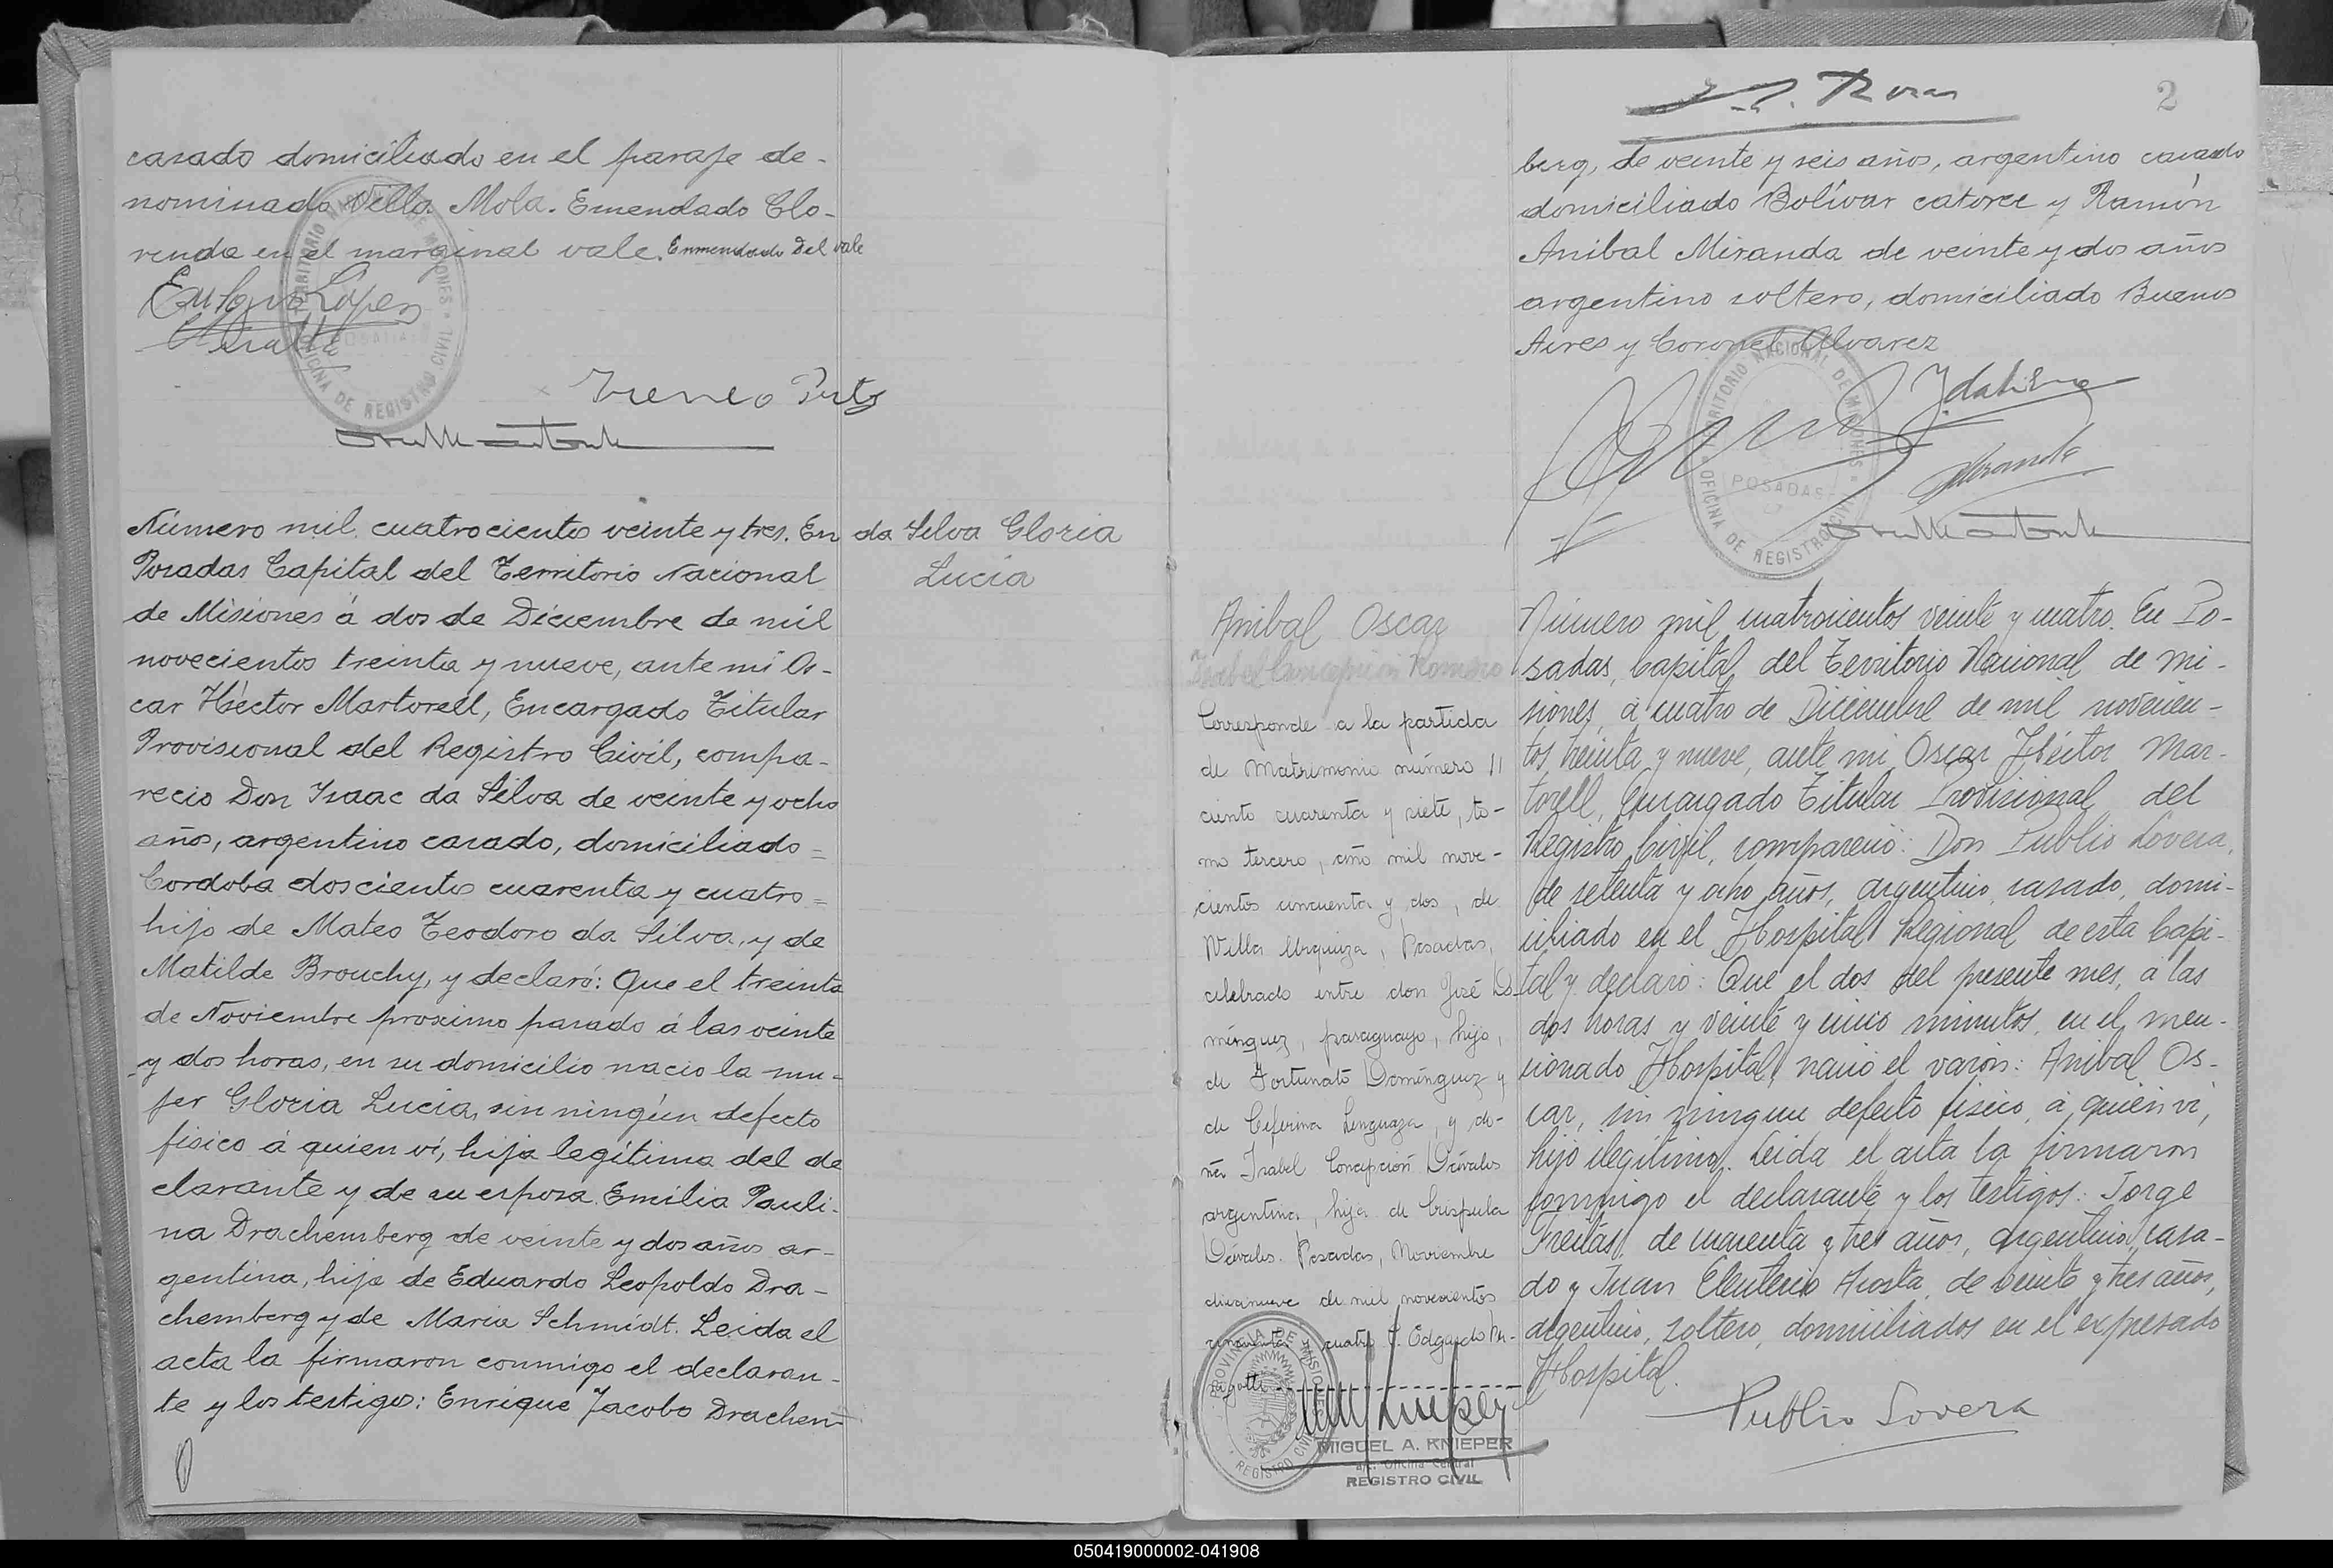 casado domiciliado en el paraje de-
nominado Villa Mola. Emendado Clo-
rinda en el marginal vale. Enmendado Del vale
Número mil cuatrocientos veinte y tres. En
Posadas Capital del Territorio Nacional
de Misiones á dos de Diciembre de mil
novecientos treinta y nueve, ante mí Os-
car Héctor Martorell, Encargado Titular
Provisional del Registro Civil, compa-
recio Don Isaac da Silva de veinte y ocho
años, argentino casado, domiciliado =
Cordoba doscientos cuarenta y cuatro =
hijo de Mateo Teodoro da Silva, y de
Matilde Brouchy, y declaró: Que el treinta
de Noviembre proximo pasado á las veinte
y dos horas, en su domicilio nacio la mu-
jer Gloria Lucia, sin ningún defecto
fisico á quien ví, hija legítima del de
clarante y de su esposa Emilia Pauli-
na Drachemberg de veinte y dos años ar-
gentina, hija de Eduardo Leopoldo Dra-
chemberg y de Maria Schmidt. Leida el
acta la firmaron conmigo el declaran-
te y los testigos: Enrique Jacobo Drachem-
da Silva Gloria
Lucia
2
berg, de veinte y seis años, argentino casado
domiciliado Bolívar catorce y Ramón
Anibal Miranda de veinte y dos años
argentino soltero, domiciliado Buenos
Aires y Coronel Alvarez
TERRITORIO NACIONAL DE MISIONES
POSADAS
OFICINA DE REGISTRO CIVIL
Anibal Oscar
Isabel Concepción Romero
Corresponde a la partida
de Matrimonio número 11
ciento cuarenta y siete, to-
mo tercero, año mil nove-
cientos cincuenta y dos, de
Villa Urquiza, Posadas,
celebrado entre don José Do-
mínguez, paraguayo, hijo,
de Fortunato Domínguez y
de Ceferina Lenguaza, y do-
ña Isabel Concepción Dávalos
argentina, hija de Crispula
Dávalos. Posadas, Noviembre
diecinueve de mil novecientos
cincuenta y cuatro
PROVINCIA DE MISIONES
REGISTRO CIVIL
MIGUEL A. KNIEPER
Oficina Central
REGISTRO CIVIL
Número mil cuatrocientos veinte y cuatro. En Po-
sadas, Capital del Territorio Nacional de Mi-
siones, á cuatro de Diciembre de mil novecien-
tos treinta y nueve, ante mi Oscar Héctor Mar-
torell, Encargado Titular Provisional del
Registro Civil, compareció: Don Publio Lovera,
de setenta y ocho años, argentino, casado, domi-
ciliado en el Hospital Regional de esta Capi-
tal y declaró: Que el dos del presente mes, á las
dos horas y veinte y cinco minutos, en el men-
cionado Hospital, nació el varón: Anibal Os-
car, sin ningun defecto fisico, á quién ví,
hijo ilegitimo. Leida el acta la firmaron
conmigo el declarante y los testigos: Jorge
Freitas, de cuarenta y tres años, argentino, casa-
do y Juan Eleuterio Acosta, de veinte y tres años,
argentino, soltero, domiciliados en el expresado
Hospital.
Publio Lovera
050419000002-041908